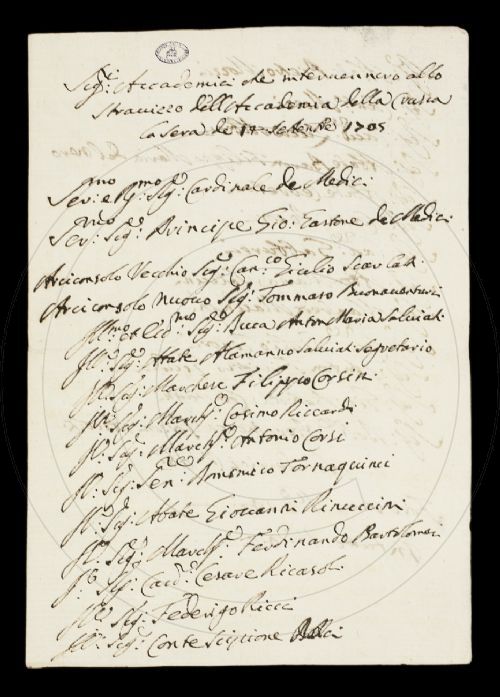 Sig.ri Accademici che intervennero allo
Stravizzo dell'Accademia della Crusca
la Sera de 17 Settembre 1705
Ser:mo e R:mo Sig: Cardinale de Medici
Ser:mo Sig: Principe Gio: Gastone de Medici
Arciconsolo Vecchio Sig: Can:co Giulio Scarlati
Arciconsolo nuovo Sig: Tommaso Buonaventuri
Ill:mo et Ecc:mo Sig: Duca Anton Maria Salviati
Ill: Sig: Abate Alamanno Salviati Segretario
Ill: Sig: Marchese Filippo Corsini
Ill: Sig: March: Cosimo Riccardi
Ill: Sig: March: Antonio Corsi
Ill: Sig: Sen: Domenico Tornaquinci
Ill: Sig: Abate Giovanni Rinuccini
Ill: Sig: March: Ferdinando Bartolomei
Ill: Sig: Cav: Cesare Ricasoli
Ill: Sig: Federigo Ricci
Ill: Sig: Conte Scipione